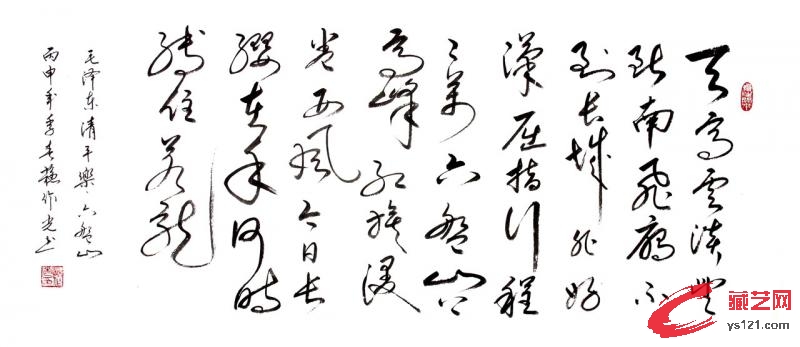 天高雲淡望
断南飛雁不
到长城非好
漢屈指行程
二萬六盘山上
高峰红旗漫
卷西风今日长
缨在手何时
缚住苍龙
毛泽东清平樂·六盘山
丙申年季春 作光书
藏艺网
ys121.com